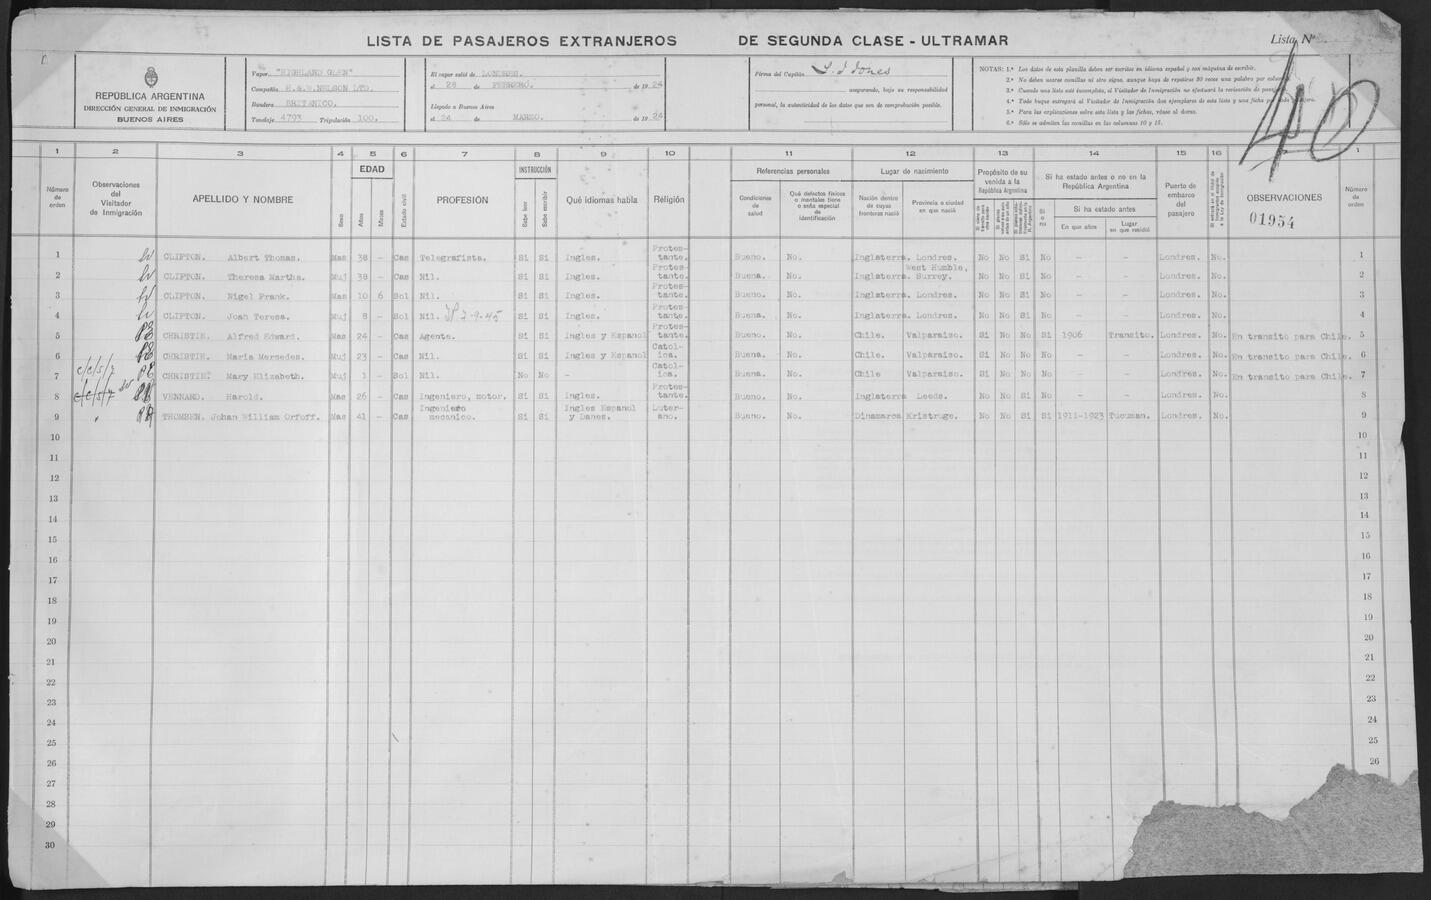 LISTA DE PASAJEROS EXTRANJEROS DE SEGUNDA CLASE - ULTRAMAR
Lista Nº
40
REPÚBLICA ARGENTINA
DIRECCIÓN GENERAL DE INMIGRACIÓN
BUENOS AIRES
Vapor "HIGHLAND GLEN"
Compañía H.& W. NELSON LTD.
Bandera BRITANICO.
Tonelaje 4793 Tripulación 100.
El vapor salió de LONDRES.
el 28 de FEBRERO. de 1924
Llegado a Buenos Aires
el 24 de MARZO. de 1924
Firma del Capitán
asegurando, bajo su responsabilidad
personal, la autenticidad de los datos que son de comprobación posible.
NOTAS: 1.ª Los datos de esta planilla deben ser escritos en idioma español y con máquina de escribir.
2.ª No deben usarse comillas ni otro signo, aunque haya de repetirse 30 veces una palabra por
3.ª Cuando una lista esté incompleta, el Visitador de Inmigración no efectuará la revisación de
4.ª Todo buque entregará al Visitador de Inmigración dos ejemplares de esta lista y una ficha
5.ª Para las explicaciones sobre esta lista y las fichas, véase al dorso.
6.ª Sólo se admiten las comillas en las columnas 10 y 15.
1 2 3 4 5 6 7 8 9 10 11 12 13 14 15 16 1
Número de orden
Observaciones del Visitador de Inmigración
APELLIDO Y NOMBRE
Sexo
EDAD
Años
Meses
Estado civil
PROFESIÓN
INSTRUCCIÓN
Sabe leer
Sabe escribir
Qué idiomas habla
Religión
Referencias personales
Condiciones de salud
Qué defectos físicos o mentales tiene o seña especial de identificación
Lugar de nacimiento
Nación dentro de cuyas fronteras nació
Provincia o ciudad en que nació
Propósito de su venida a la República Argentina
Si ha estado antes o no en la República Argentina
Si o no
Si ha estado antes
En que años
Lugar en que residió
Puerto de embarco del pasajero
OBSERVACIONES
01954
Número de orden
1 CLIPTON. Albert Thomas. Mas 38 - Cas Telegrafista. Si Si Ingles. Protestante. Bueno. No. Inglaterra. Londres. No No Si No - - Londres. No. 1
2 CLIPTON. Theresa Martha. Muj 38 - Cas Nil. Si Si Ingles. Protestante. Buena. No. Inglaterra. West Humble, Surrey. No No Si No - - Londres. No. 2
3 CLIPTON. Nigel Frank. Mas 10 6 Sol Nil. Si Si Ingles. Protestante. Bueno. No. Inglaterra. Londres. No No Si No - - Londres. No. 3
4 CLIPTON. Joan Teresa. Muj 8 - Sol Nil. 7-9-45 Si Si Ingles. Protestante. Buena. No. Inglaterra. Londres. No No Si No - - Londres. No. 4
5 CHRISTIE. Alfred Edward. Mas 24 - Cas Agente. Si Si Ingles y Espanol Protestante. Bueno. No. Chile. Valparaiso. Si No No Si 1906 Transito. Londres. No. En transito para Chile. 5
6 CHRISTIE. Maria Mercedes. Muj 23 - Cas Nil. Si Si Ingles y Espanol Catolica. Buena. No. Chile. Valparaiso. Si No No No - - Londres. No. En transito para Chile. 6
7 CHRISTIE. Mary Elizabeth. Muj 1 - Sol Nil. No No - Catolica. Buena. No. Chile Valparaiso. Si No No No - - Londres. No. En transito para Chile. 7
8 VENNARD. Harold. Mas 26 - Cas Ingeniero, motor. Si Si Ingles. Protestante. Bueno. No. Inglaterra Leeds. No No Si No - - Londres. No. 8
9 THOMSEN. Johan William Orfoff. Mas 41 - Cas Ingeniero mecanico. Si Si Ingles Espanol y Danes. Luterano. Bueno. No. Dinamarca Kristruge. No No Si Si 1911-1923 Tucuman. Londres. No. 9
10 10
11 11
12 12
13 13
14 14
15 15
16 16
17 17
18 18
19 19
20 20
21 21
22 22
23 23
24 24
25 25
26 26
27
28
29
30